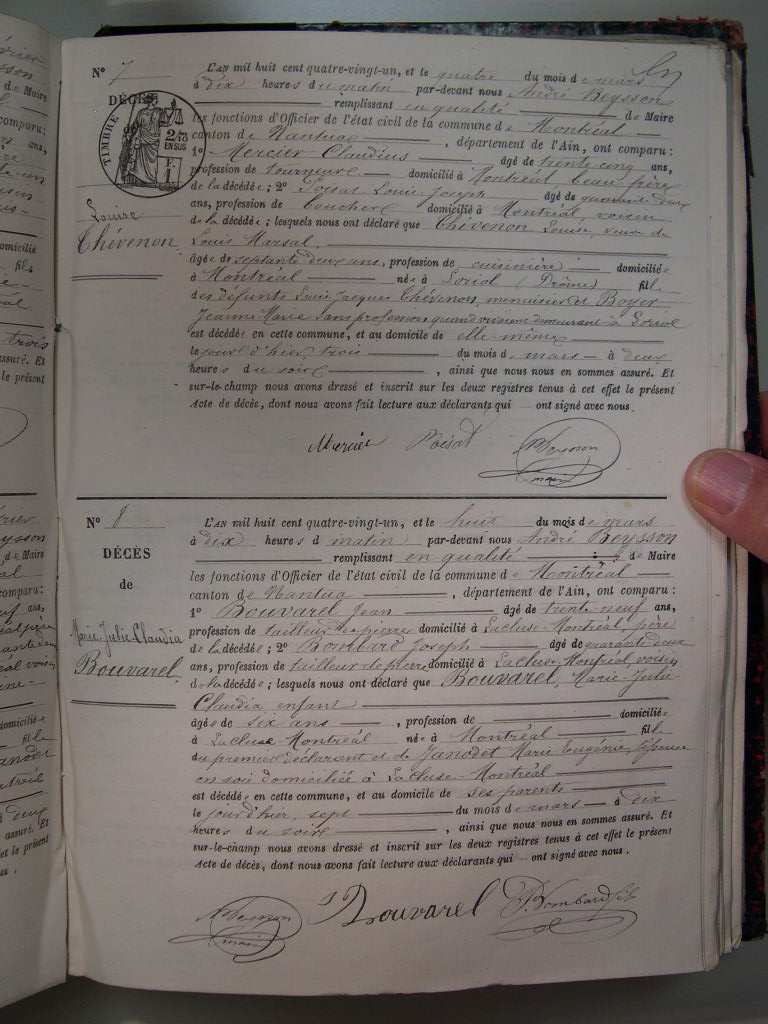 N° 7
DÉCÈS
TIMBRE
2/10
EN SUS
Louise
Thévenon
L'AN mil huit cent quatre-vingt-un, et le quatre du mois de mars
à dix heures du matin par-devant nous André Beysson
remplissant en qualité de Maire
les fonctions d'Officier de l'état civil de la commune de Montréal
canton de Nantua, département de l'Ain, ont comparu :
1° Mercier Claudius âgé de trente cinq ans,
profession de tourneur domicilié à Montréal beau père
de la décédée ; 2° Poisat Louis Joseph âgé de quarante deux
ans, profession de boucher domicilié à Montréal, voisin
de la décédée ; lesquels nous ont déclaré que Thévenon Louise, veuve de
Louis Marsal,
âgée de septante deux ans, profession de cuisinière domiciliée
à Montréal née à Loriol (Drôme) fille
des défunts Louis Jacques Thévenon, menuisier et Boyer
Jeanne Marie sans profession quand vivaient demeurant à Loriol
est décédée en cette commune, et au domicile de elle-même
le jour d'hier, trois du mois de mars à deux
heures du soir, ainsi que nous nous en sommes assuré. Et
sur-le-champ nous avons dressé et inscrit sur les deux registres tenus à cet effet le présent
Acte de décès, dont nous avons fait lecture aux déclarants qui ont signé avec nous.
Mercier Poisat A Beysson
maire
N° 8
DÉCÈS
de
Marie-Julie-Claudia
Bouvarel
L'AN mil huit cent quatre-vingt-un, et le huit du mois de mars
à dix heures du matin par-devant nous André Beysson
remplissant en qualité de Maire
les fonctions d'Officier de l'état civil de la commune de Montréal
canton de Nantua, département de l'Ain, ont comparu :
1° Bouvarel Jean âgé de trente neuf ans,
profession de tailleur de pierre domicilié à Lacluse Montréal, père
de la décédée ; 2° Bombard Joseph âgé de quarante deux
ans, profession de tailleur de pierre domicilié à Lacluse Montréal, voisin
de la décédée ; lesquels nous ont déclaré que Bouvarel, Marie-Julie
Claudia enfant
âgée de six ans, profession de domiciliée
à Lacluse Montréal née à Montréal fille
du premier déclarant et de Janodet Marie Eugénie, épouse
en soi domicilié à Lacluse Montréal
est décédée en cette commune, et au domicile de ses parents
le jour d'hier, sept du mois de mars à dix
heures du soir, ainsi que nous nous en sommes assuré. Et
sur-le-champ nous avons dressé et inscrit sur les deux registres tenus à cet effet le présent
Acte de décès, dont nous avons fait lecture aux déclarants qui ont signé avec nous.
A Beysson
maire
J Bouvarel J. Bombard